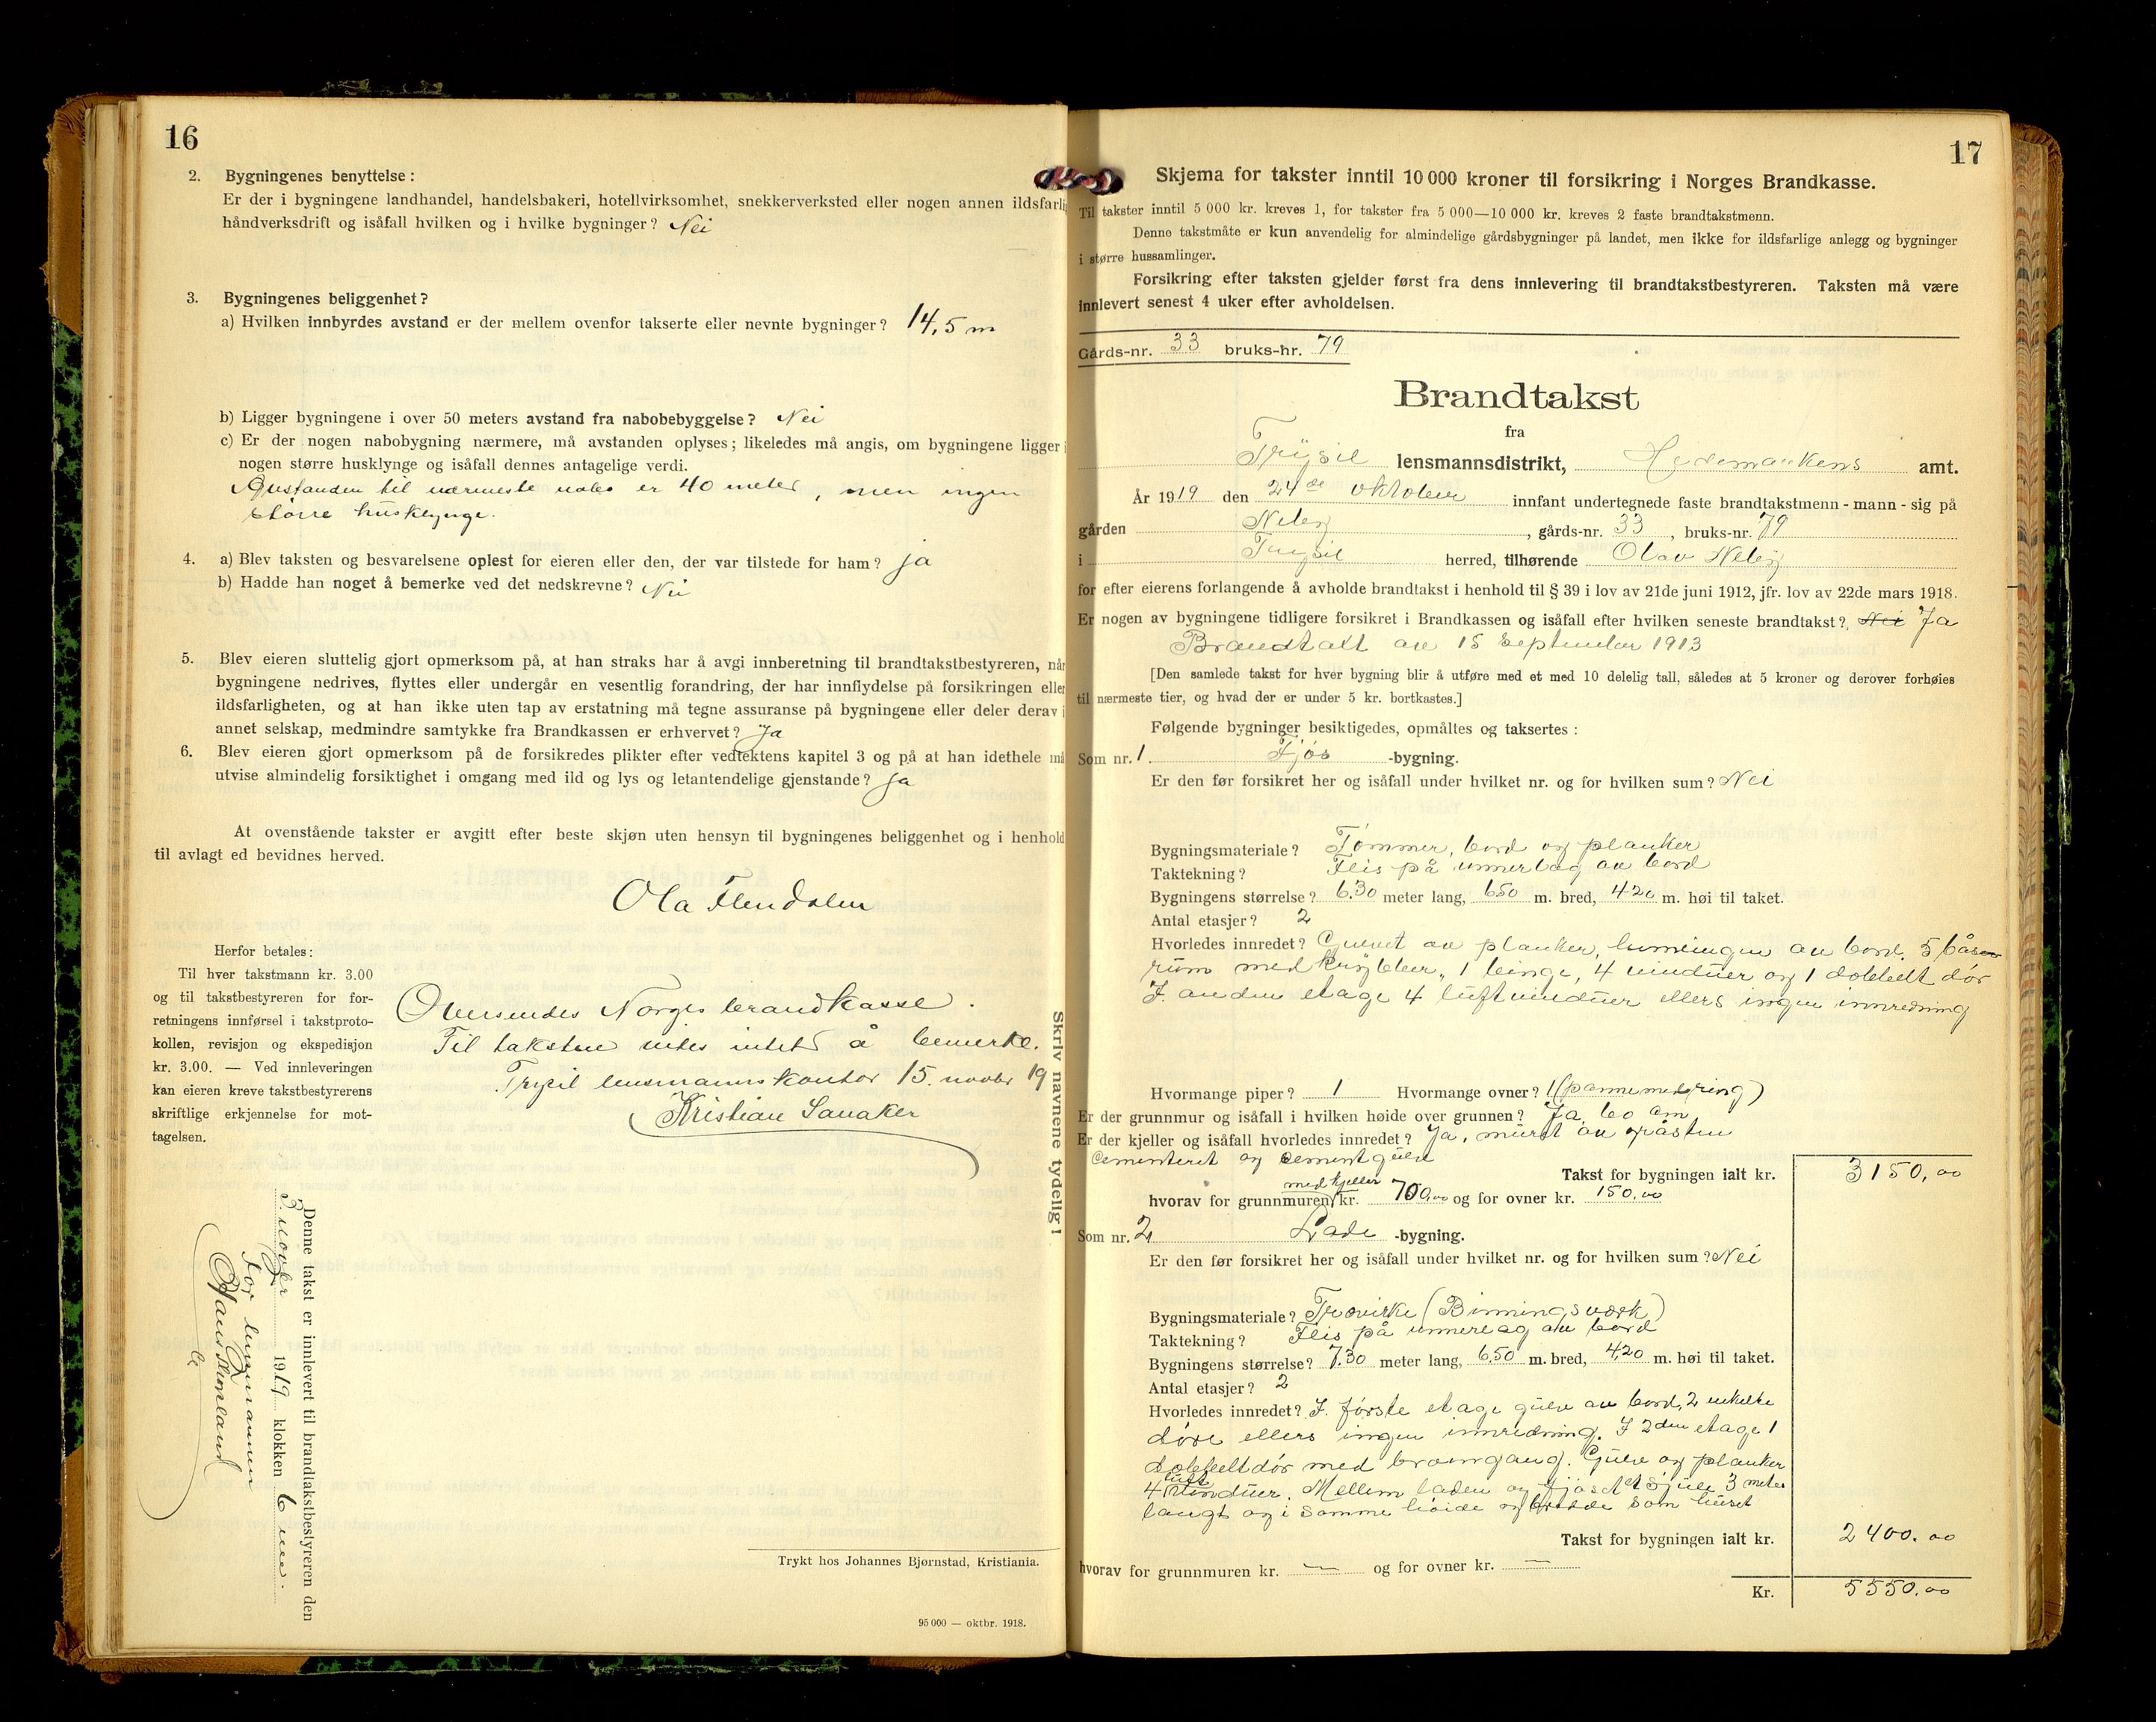 16
2. Bygningenes benyttelse:
Er der i bygningene landhandel, handelsbakeri, hotellvirksomhet, snekkerverksted eller nogen annen ildsfarlig
håndverksdrift og isåfall hvilken og i hvilke bygninger? Nei
3. Bygningenes beliggenhet?
a) Hvilken innbyrdes avstand er der mellem ovenfor takserte eller nevnte bygninger? 14,5 m
b) Ligger bygningene i over 50 meters avstand fra nabobebyggelse? Nei
c) Er der nogen nabobygning nærmere, må avstanden oplyses; likeledes må angis, om bygningene ligger i
nogen større husklynge og isåfall dennes antagelige verdi.
Avstanden til nærmeste nabo er 40 meter, men ingen
større husklynge.
4. a) Blev taksten og besvarelsene oplest for eieren eller den, der var tilstede for ham? ja
b) Hadde han noget å bemerke ved det nedskrevne? Nei
5. Blev eieren sluttelig gjort opmerksom på, at han straks har å avgi innberetning til brandtakstbestyreren, når
bygningene nedrives, flyttes eller undergår en vesentlig forandring, der har innflydelse på forsikringen eller
ildsfarligheten, og at han ikke uten tap av erstatning må tegne assuranse på bygningene eller deler derav i
annet selskap, medmindre samtykke fra Brandkassen er erhvervet? Ja
6. Blev eieren gjort opmerksom på de forsikredes plikter efter vedtektens kapitel 3 og på at han idethele må
utvise almindelig forsiktighet i omgang med ild og lys og letantendelige gjenstande? ja
At ovenstående takster er avgitt efter beste skjøn uten hensyn til bygningenes beliggenhet og i henhold
til avlagt ed bevidnes herved.
Ola Flendalen
Herfor betales:
Til hver takstmann kr. 3.00
og til takstbestyreren for for-
retningens innførsel i takstproto-
kollen, revisjon og ekspedisjon
kr. 3.00. — Ved innleveringen
kan eieren kreve takstbestyrerens
skriftlige erkjennelse for mot-
tagelsen.
Oversendes Norges brandkasse.
Til taksten vites intet å bemerke.
Trysil lensmannskontor 15. novbr 19
Kristian Sanaker
Skriv navnene tydelig!
Denne takst er innlevert til brandtakstbestyreren den
3 novbr 1919 klokken 6 em.
For lensmannen
Trykt hos Johannes Bjørnstad, Kristiania.
95 000 — oktbr. 1918.
17
Skjema for takster inntil 10 000 kroner til forsikring i Norges Brandkasse.
Til takster inntil 5 000 kr. kreves 1, for takster fra 5 000—10 000 kr. kreves 2 faste brandtakstmenn.
Denne takstmåte er kun anvendelig for almindelige gårdsbygninger på landet, men ikke for ildsfarlige anlegg og bygninger
i større hussamlinger.
Forsikring efter taksten gjelder først fra dens innlevering til brandtakstbestyreren. Taksten må være
innlevert senest 4 uker efter avholdelsen.
Gårds-nr. 33 bruks-nr. 79
Brandtakst
fra
Trysil lensmannsdistrikt, Hedemarkens amt.
År 1919 den 24de oktober innfant undertegnede faste brandtakstmenn - mann - sig på
gården Neby, gårds-nr. 33, bruks-nr. 79
i Trysil herred, tilhørende Olav Neby
for efter eierens forlangende å avholde brandtakst i henhold til § 39 i lov av 21de juni 1912, jfr. lov av 22de mars 1918.
Er nogen av bygningene tidligere forsikret i Brandkassen og isåfall efter hvilken seneste brandtakst? Nei Ja
Brandtakt av 15 September 1913
[Den samlede takst for hver bygning blir å utføre med et med 10 delelig tall, således at 5 kroner og derover forhøies
til nærmeste tier, og hvad der er under 5 kr. bortkastes.]
Følgende bygninger besiktigedes, opmåltes og taksertes:
Som nr. 1 Fjøs -bygning.
Er den før forsikret her og isåfall under hvilket nr. og for hvilken sum? Nei
Bygningsmateriale? Tømmer, bord og planker
Taktekning? Flis på unnerlag av bord
Bygningens størrelse? 6.30 meter lang, 650 m. bred, 420 m. høi til taket.
Antal etasjer? 2
Hvorledes innredet? Gulvet av planker, himlingen av bord. 5 båse
rum med krybber, 1 binge, 4 vinduer og 1 dobbelt dør
I anden etage 4 luftvinduer ellers ingen innredning
Hvormange piper? 1 Hvormange ovner? 1 (panne med ring)
Er der grunnmur og isåfall i hvilken høide over grunnen? Ja, 60 cm
Er der kjeller og isåfall hvorledes innredet? Ja, muret av gråsten
cementeret og cementgulv
Takst for bygningen ialt kr. 3150,00
hvorav for grunnmuren med kjeller kr. 700,00 og for ovner kr. 150,00
Som nr. 2 Lade -bygning.
Er den før forsikret her og isåfall under hvilket nr. og for hvilken sum? Nei
Bygningsmateriale? Trævirke (Binningsværk)
Taktekning? Flis på unnerlag av bord
Bygningens størrelse? 7.30 meter lang, 6.50 m. bred, 4.20 m. høi til taket.
Antal etasjer? 2
Hvorledes innredet? I første etage gulv av bord, 2 enkelte
døre ellers ingen innredning. I 2den etage 1
dobbeltdør med bromgang. Gulv og planker
4 luft vinduer. Mellem laden og fjøset et skjul 3 meter
langt og i samme høide og bredde som huset
Takst for bygningen ialt kr. 2400.00
hvorav for grunnmuren kr. — og for ovner kr. —
Kr. 5550.00